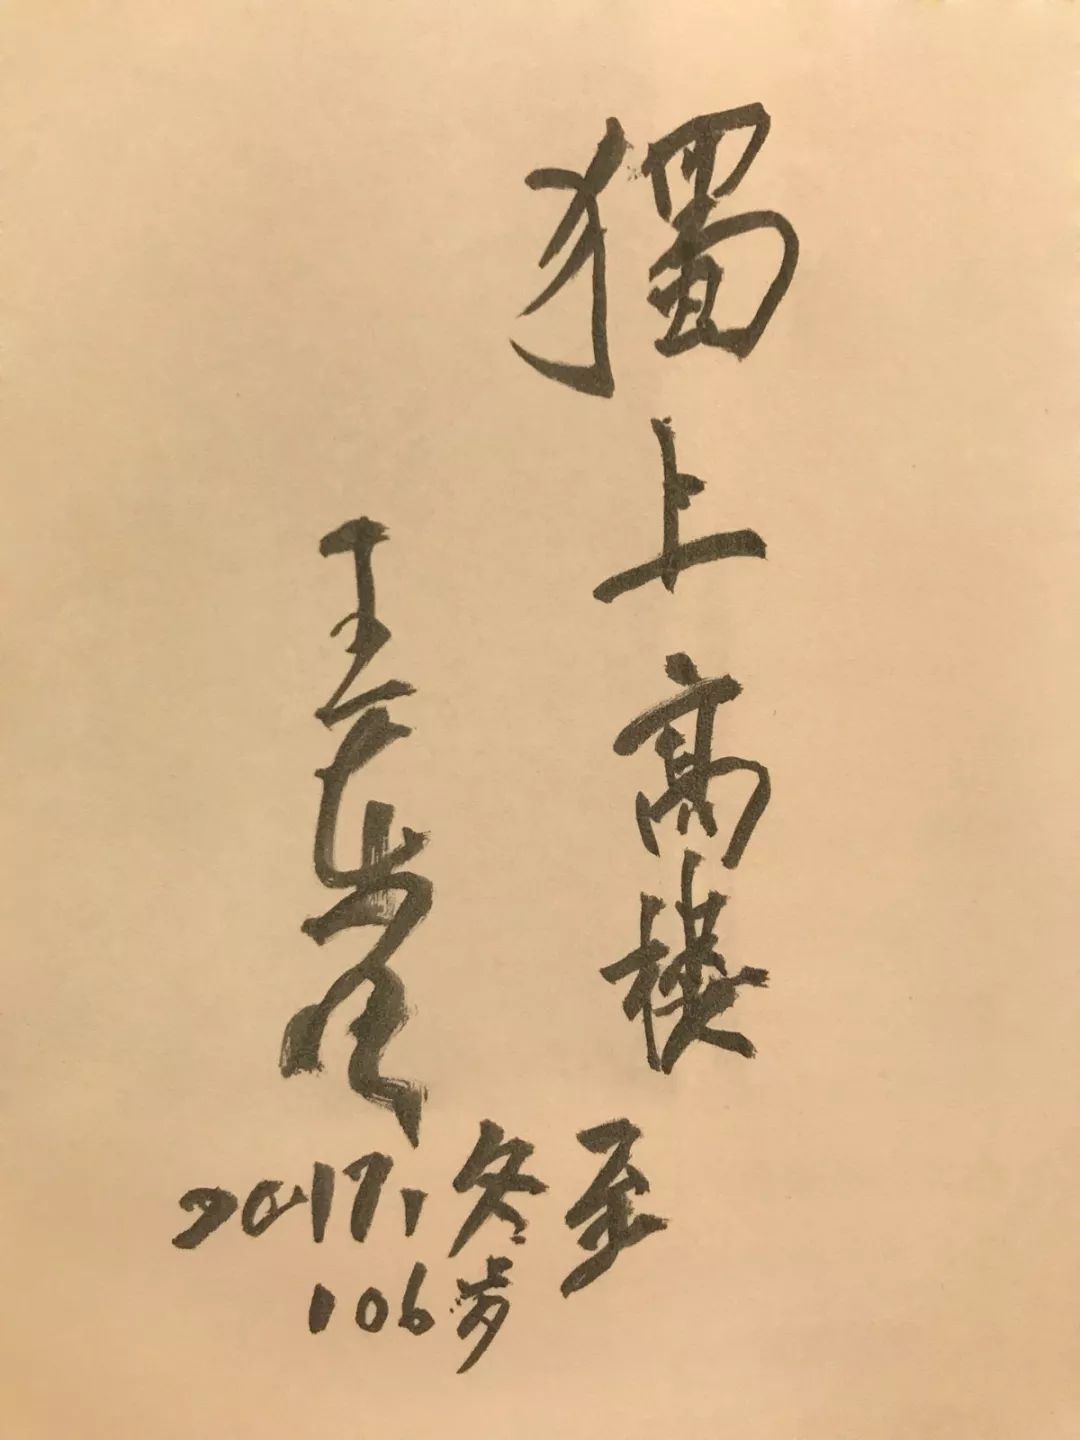 獨上高楼
王
2017,冬至
106岁